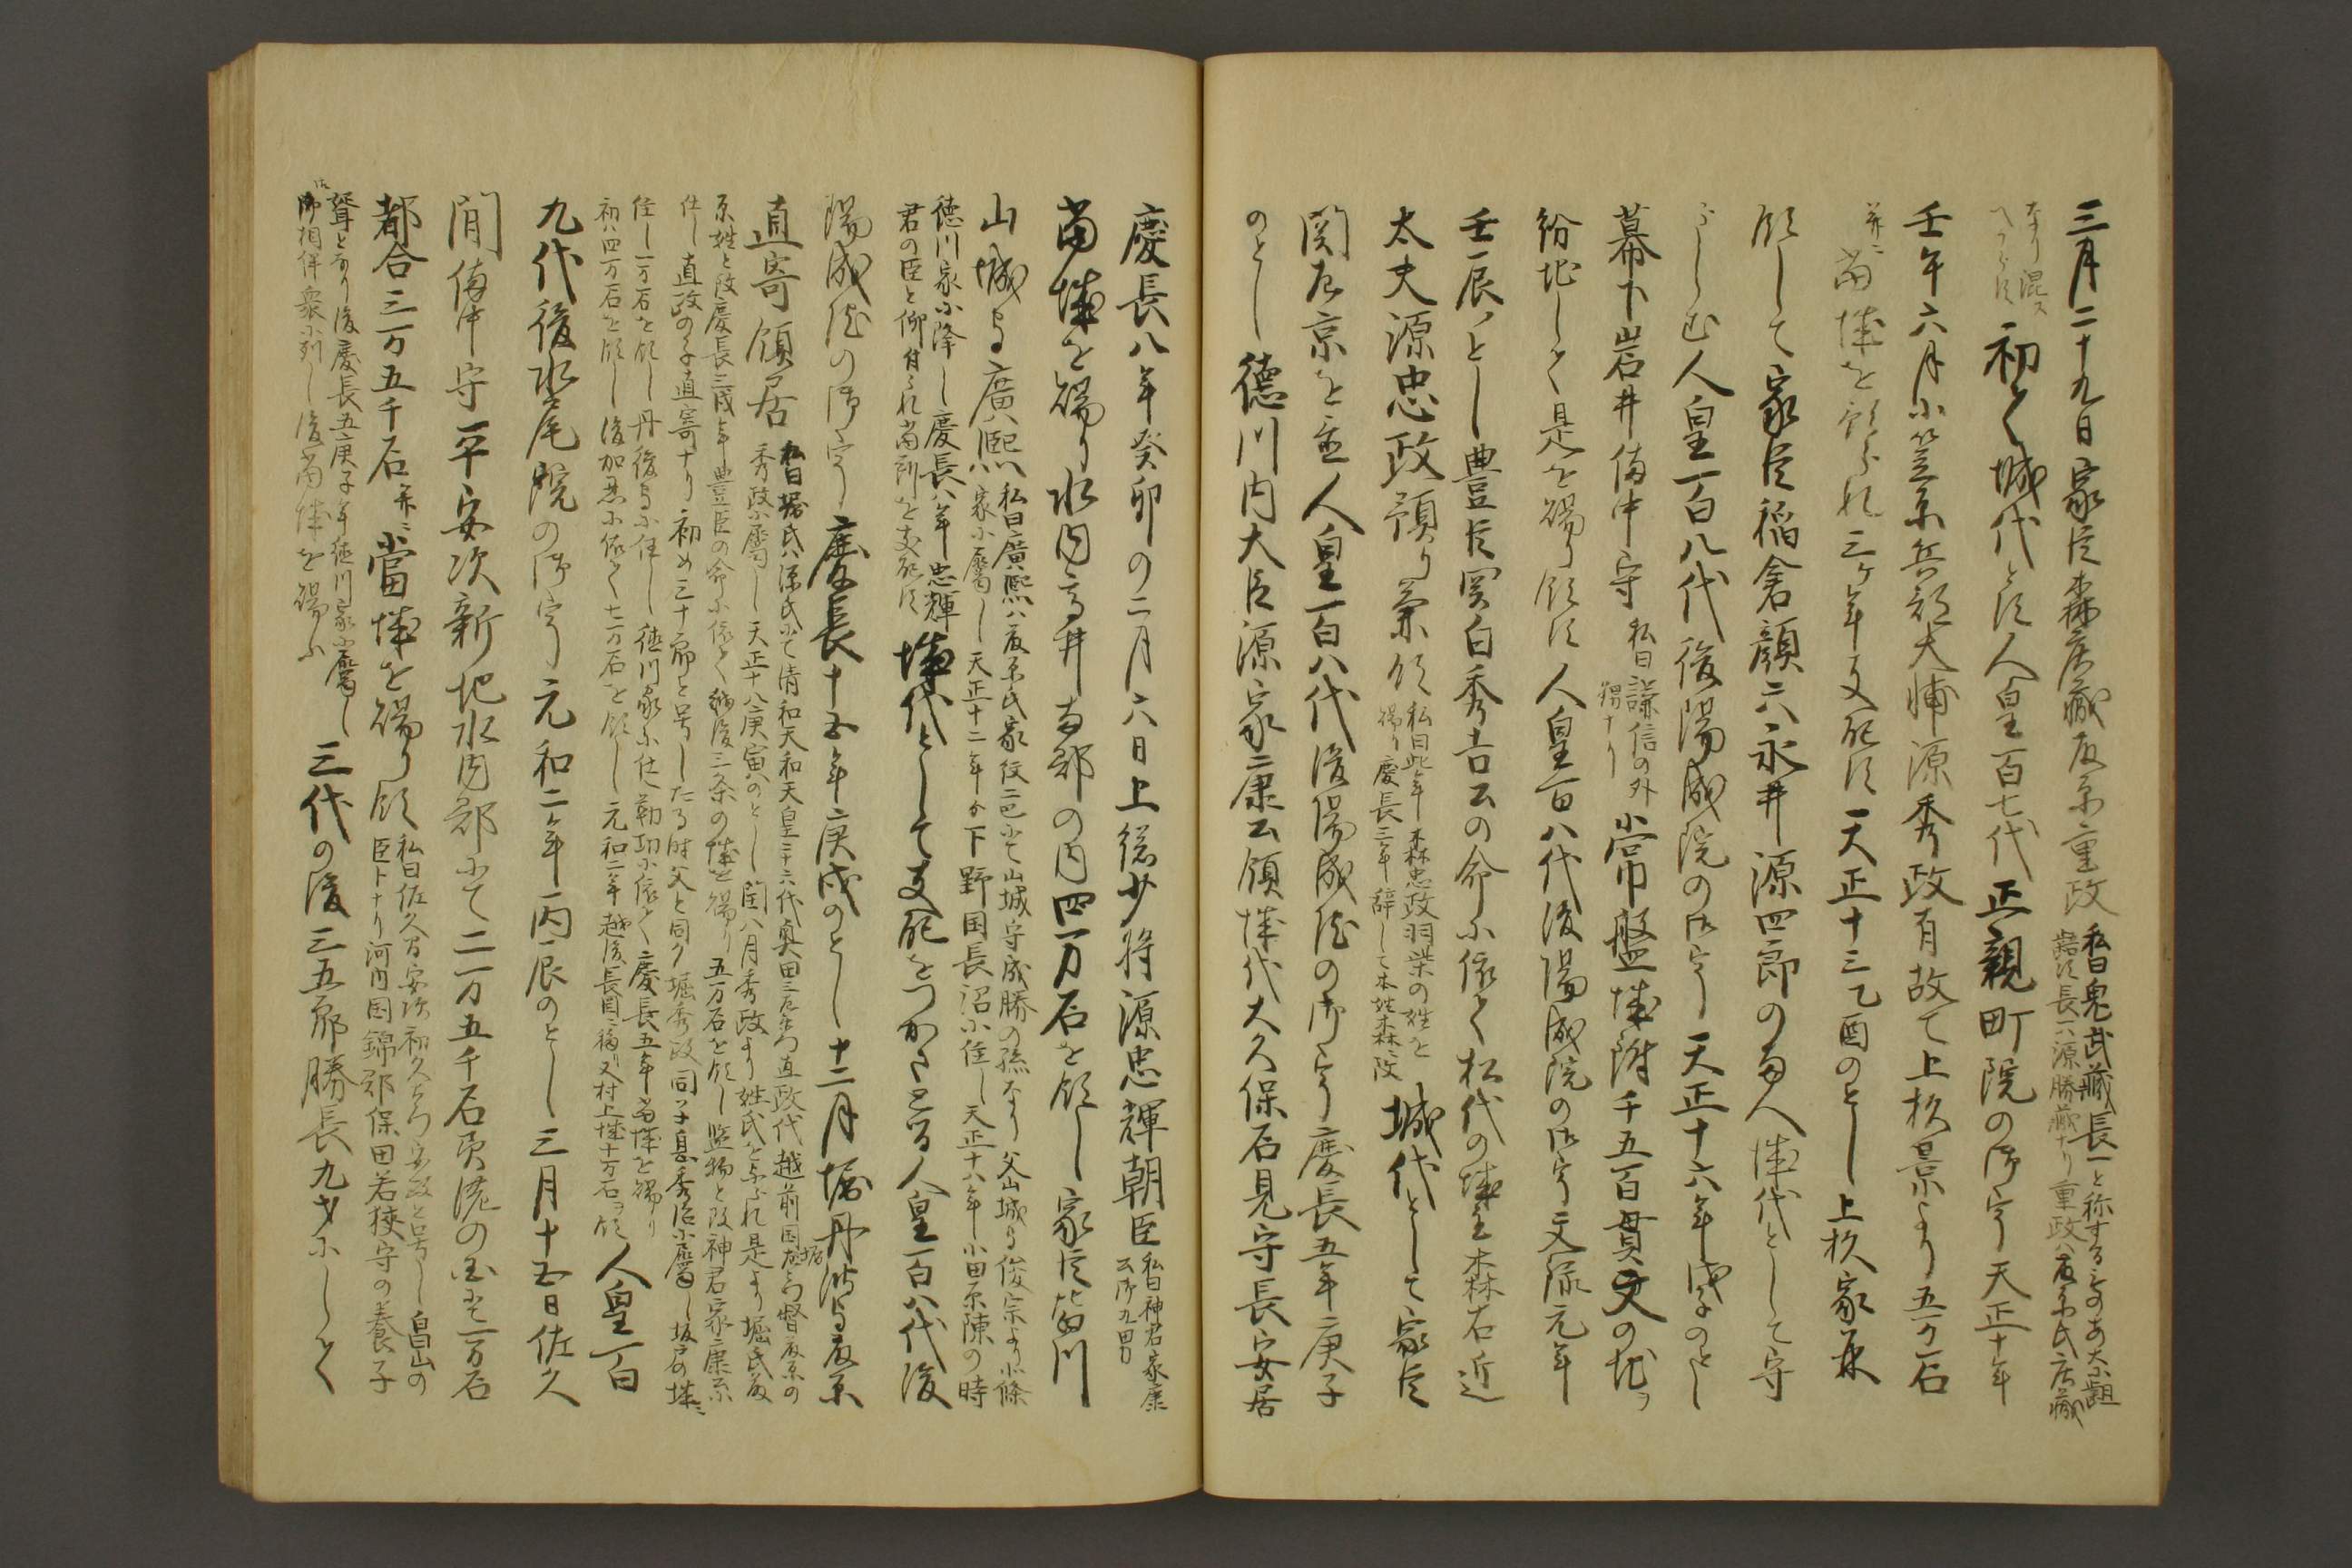 三月二十九日家臣森庄蔵藤原重政
私曰鬼武蔵長一と称するものあ大に齟
齬す長一ハ源勝蔵ナリ重政ハ藤原氏庄蔵
なり混ス
へからす
初て城代とす人皇一百七代正親町院の御宇天正十年
壬午六月小笠原兵部大輔源秀政有故て上杦景より五万石
并ニ当城を領られ三ヶ年支配す天正十三乙酉のとし上杦家兼
領して家臣稲倉顔六永井源四郎の両人城代として守
らしむ人皇一百八代後陽成院の御宇天正十六年戊子のとし
幕下岩井備中守
私曰謙信の外
甥ナリ
常盤城附千五百貫文の地ヲ
紛地しく是を賜り領す人皇一百八代後陽成院の御宇文禄元年
壬辰のとし豊臣関白秀吉公の命に依て松代の城主森右近
太夫源忠政預り兼領
私曰此年森忠政羽柴の姓を
賜り慶長三年辞して本姓森改
城代として家臣
関左京を置人皇一百八代後陽成院の御宇慶長五年庚子
のとし徳川内大臣源家康公領城代大久保石見守長安居
慶長八年癸卯の二月六日上総少将源忠輝朝臣
私曰神君家康
公御九男
当城を賜り水内高井両郡の内四万石を領し家臣皆川
山城守廣熙
私曰廣熙ハ藤原氏家紋二巴にて山城守成勝の孫なり父山城守俊宗より北條
家に属し天正十二年ゟ下野国長沼に住し天正十八年小田原陳の時
徳川家に降し慶長八年忠輝
君の臣と仰付られ当所を支配す
城代として支配をつかさどる人皇一百八代後
陽成院の御宇慶長十五年庚戌のとし十二月堀丹波守藤原
直寄領居
私曰堀氏ハ源氏にて清和天和天皇三十六代奥田三右衛門直政代越前国堀左衛門督藤原の
秀政に属し天正十八庚寅のとし閏八月秀政より姓氏を与られ是より堀氏藤
原姓と改慶長三戊年豊臣の命に依て越後三条の城を賜り五万石を領し監物と改神君家康公
仕し直政の子直寄ナリ初め三十郎と号したる時父と同ク堀秀政同子息秀治に属し坂戸の城ニ
住し一万石を領し丹後守に任し徳川家に仕勤功に依て慶長五年当城を賜り
初ハ四万石を領し後加恩に依て七万石を領し元和二年越後長岡ニ移り又村上城十万石ヲ領
人皇一百
九代後水尾院の御宇元和二年丙辰のとし三月十五日佐久
間備中守平安次新地水内郡にて二万五千石頂流の内にて一万石
都合三万五千石并ニ当城を賜り領
私曰佐久間安次初久右衛門安政と号し畠山の
臣トナリ河内国錦郡保田若狭守の養子
聟となり後慶長五庚子年徳川家に属し
御相伴衆に列し後当城を賜ふ
三代の後三五郎勝長九才にしく